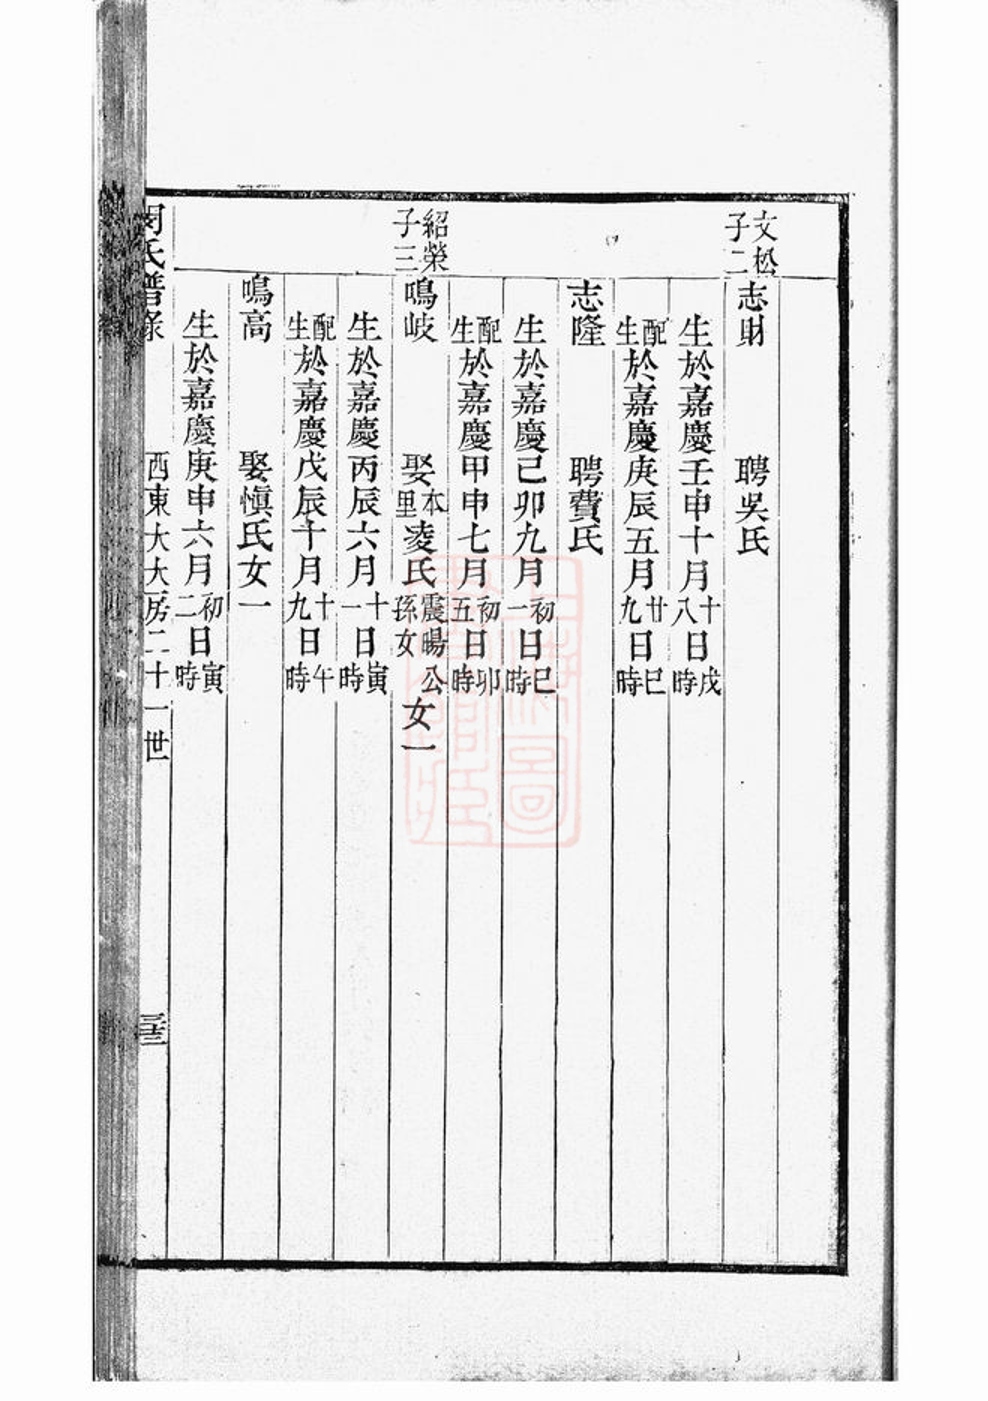 文松子二
志財 聘吳氏
生於嘉慶壬申十月十八日戌時
配生於嘉慶庚辰五月廿九日巳時
志隆 聘費氏
生於嘉慶己卯九月初一日巳時
配生於嘉慶甲申七月初五日卯時
紹榮子三
鳴岐 娶本里凌氏震暘公孫女 女一
生於嘉慶丙辰六月十一日寅時
配生於嘉慶戊辰十月十九日午時
鳴高 娶愼氏女一
生於嘉慶庚申六月初二日寅時
氏譜錄 西東大大房二十一世